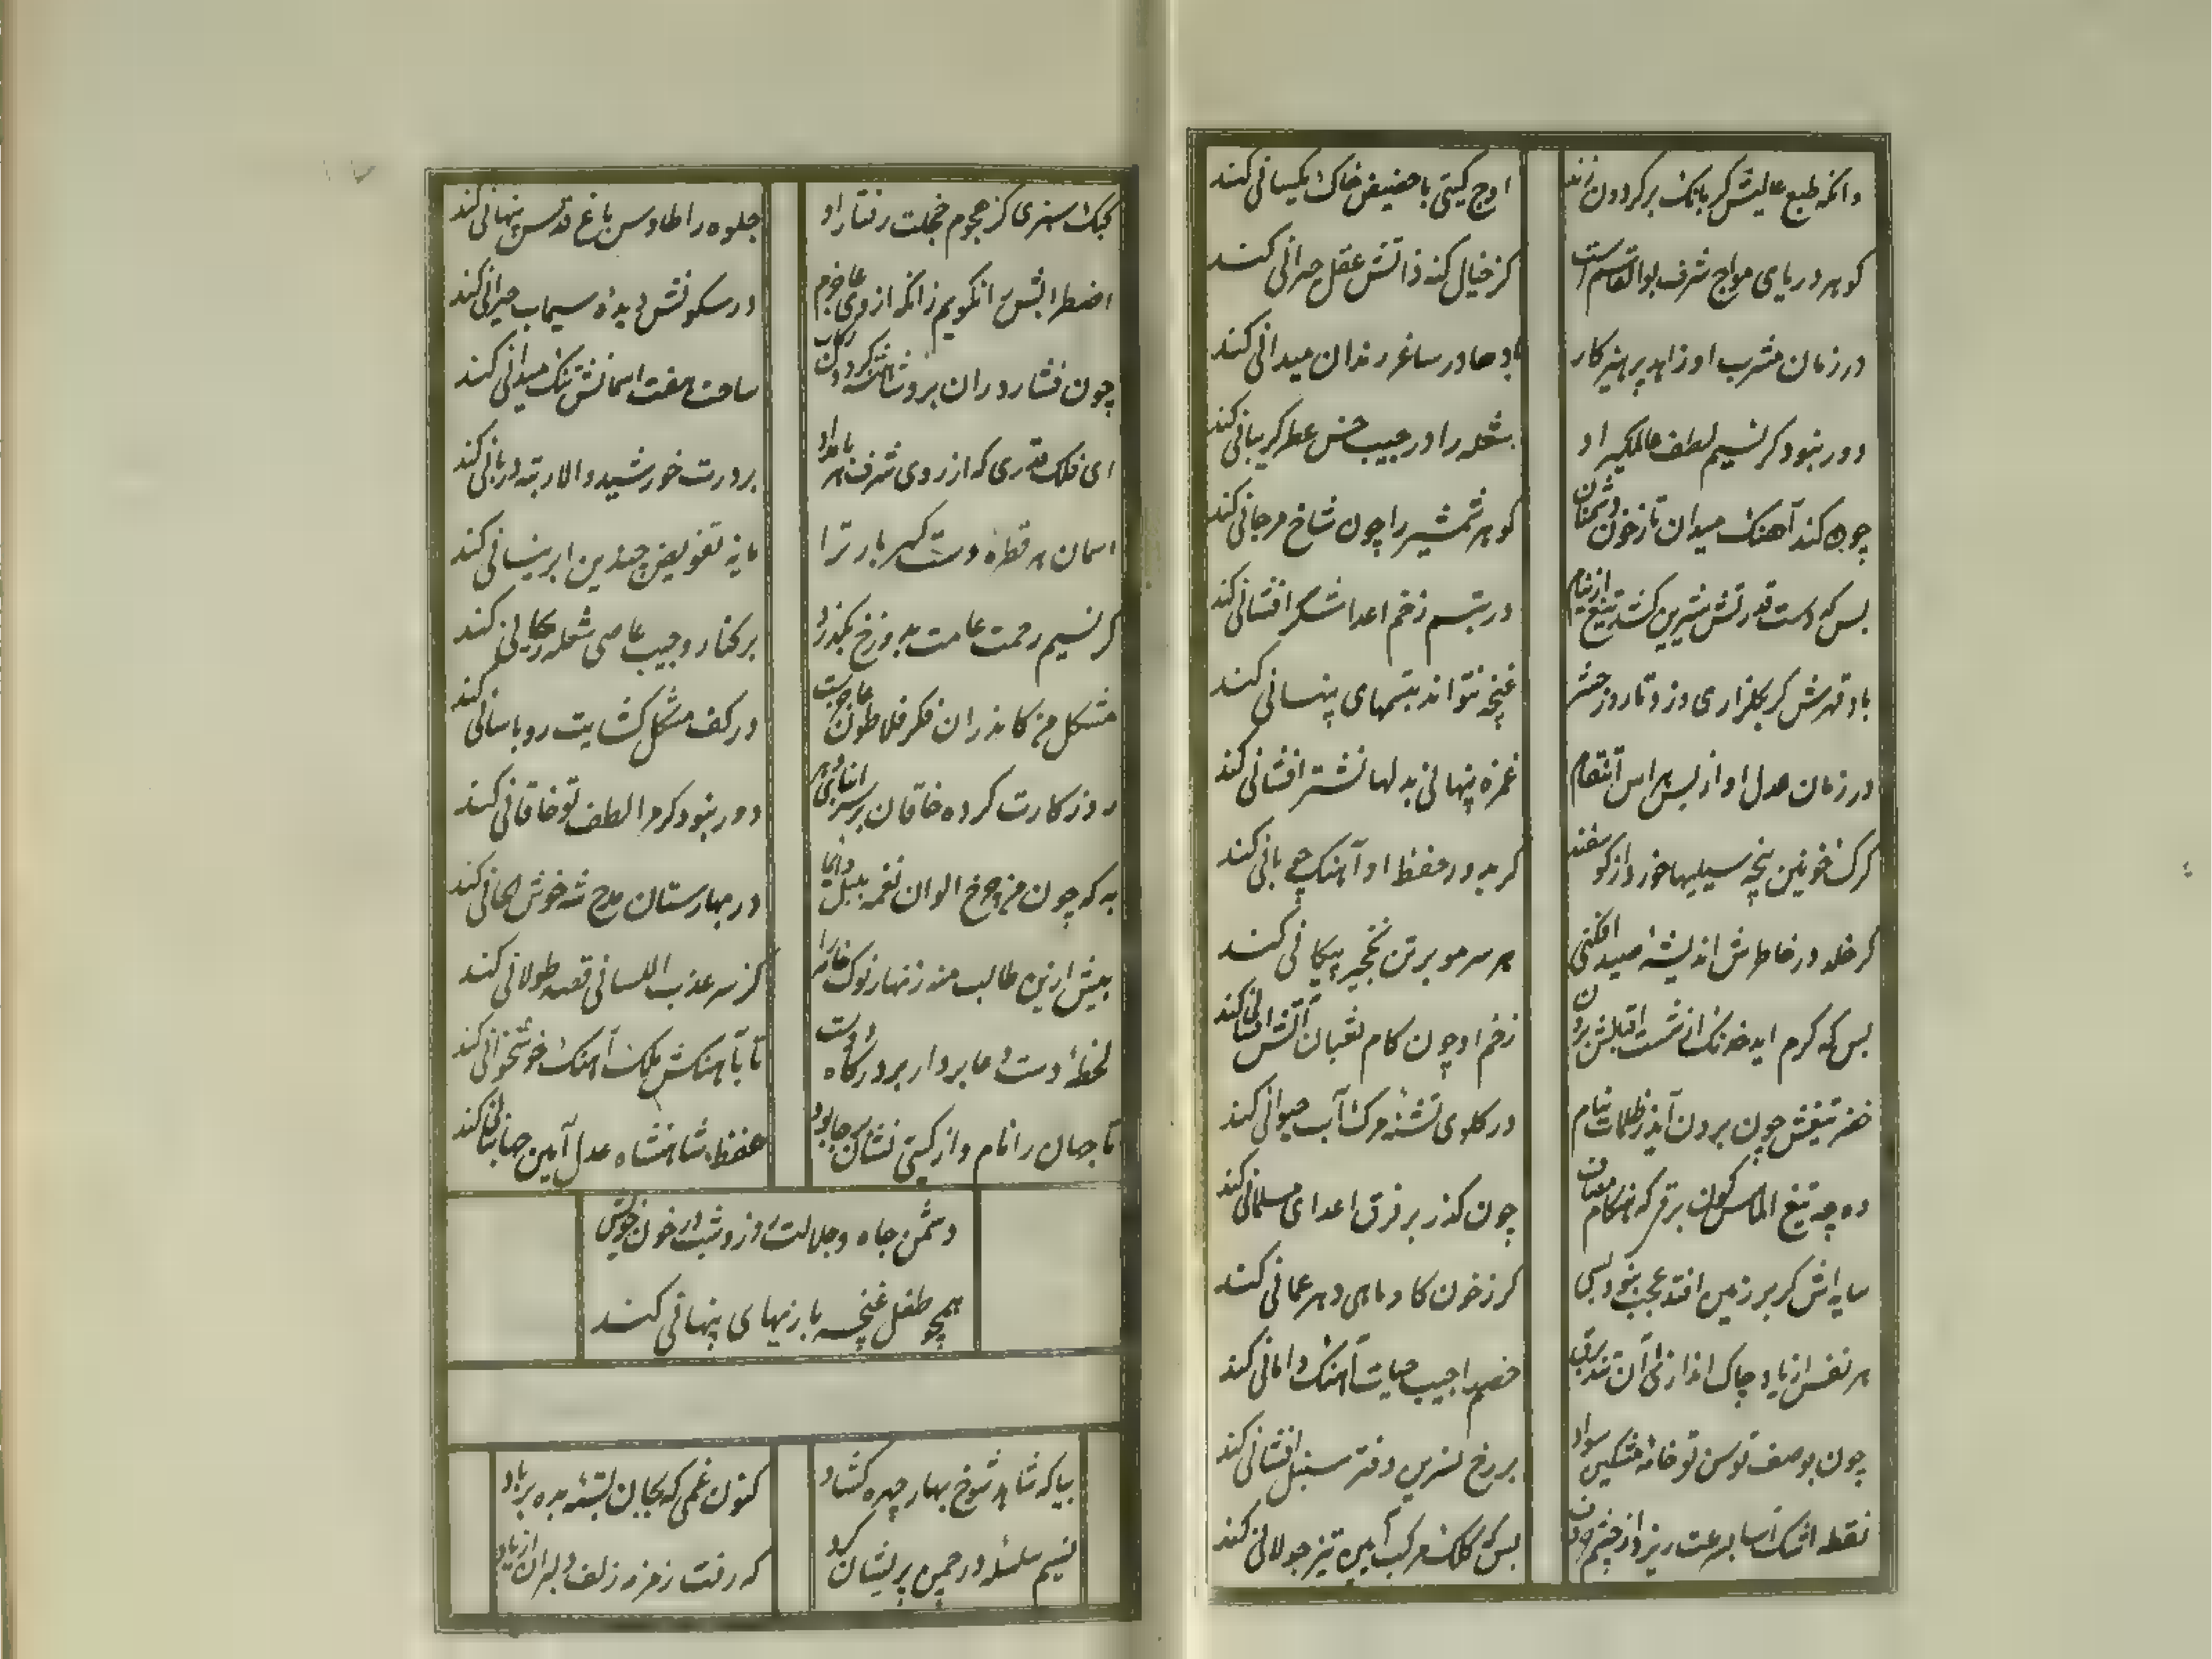 وانکه طبع عالیش کر بانک بر کردون زند
اوج کیتی با حضیض خاک یکسانی کند
کوهر دریای مواج شرف بوالقاسم است
کز خیال کنه ذاتش عقل حیرانی کند
در زمان مشرب او زاهد پرهیزکار
بادها در ساغر رندان میدانی کند
دور نبود کر نسیم لطف عالمکیر او
شعله را در جیب خس عطر کریبانی کند
چون کند آهنک میدان تا ز خون دشمنان
کوهر شمشیر را چون شاخ مرجانی کند
بس که دست قدرتش شیرین کشد تیغ از نیام
در تبسم زخم اعدا شکر افشانی کند
باد قهرش کر بکلزاری وزد تا روز حشر
غنچه نتواند تبسمهای پنهانی کند
در زمان عدل او از بس هراس انتقام
غمزه پنهانی بدلها نشتر افشانی کند
کرک خونین پنجه سیلیها خورد از کوسفند
کر به دور حفظ او آهنک چوپانی کند
کر خلد در خاطرش اندیشهٔ صید افکنی
هر سر مو بر تن نخچیر پیکانی کند
بس که کرم آید خدنک از شست اقبالش برون
زخم او چون کام ثعبان آتش افشانی کند
خضر تیغش چون برون آید ز ظلمات نیام
در کلوی تشنهٔ مرک آب حیوانی کند
وه چه تیغ الماس کون برقی که هنکام مصاف
چون کذر بر فرق اعدای مسلمانی کند
سایه اش کر بر زمین افتد عجب نبود بسی
کز خون کاو و ماهی دهر عمانی کند
هر نفس از یاد چاک اندازی آن تند برق
خصم را جیب حیات آهنک دامانی کند
چون بوصف توسن تو خامهٔ مشکین سواد
بر رخ نسرین دفتر سنبل افشانی کند
نقطه اشک آسا بسرعت ریزد از چشم
بس که کلک مرکب آیین تیز جولانی کند
کبک سنری کز هجوم خجلت رفتار او
جلوه را طاوس باغ قدس پنهانی کند
در سکونش دیدهٔ سیماب حیرانی کند
ساحت هفت اسمانش تنک میدانی کند
ای فلک قدری که از روی شرف هر بامداد
بر درت خورشید والا رتبه دربانی کند
اسمان هر قطرهٔ دست کهر بار ترا
مایه تفویض چندین ابر نیسانی کند
کر نسیم رحمت عامت به دوزخ بکذرد
بر کنار و جیب عاصی شعله ریحانی کند
مشکل من کاندران فکر فلاطون عاجز است
در کف مشکل کشایت رو باسانی کند
روزکارت کرده خاقان بر سر ابنای دهر
دور نبود کر مرا لطف تو خاقانی کند
به که چون من چرخ الوان نغمه بلبل
در بهارستان مدح شه خوش الحانی کند
بیش ازین طالب منه زنهار نوک خامه را
کز سر عذب اللسانی قصه طولانی کند
لحظهٔ دست دعا بردار بر درکاه
تا بآهنکش ملک آهنک خوشخوانی کند
تا جهان را نام و از کیتی نشان بر جا بود
حفظ شاهنشاه عدل آیین جهانبانی کند
دشمن جاه و جلالت روز و شب در خون خویش
همچو طفل غنچه بازیهای پنهانی کند
بیا که شاهد شوخ بهار چهره کشاد
کنون غمی که بجان بستهٔ بده بر باد
نسیم سلسله در چمن پریشان کرد
که رفت زمزمه زلف دلبران از یاد